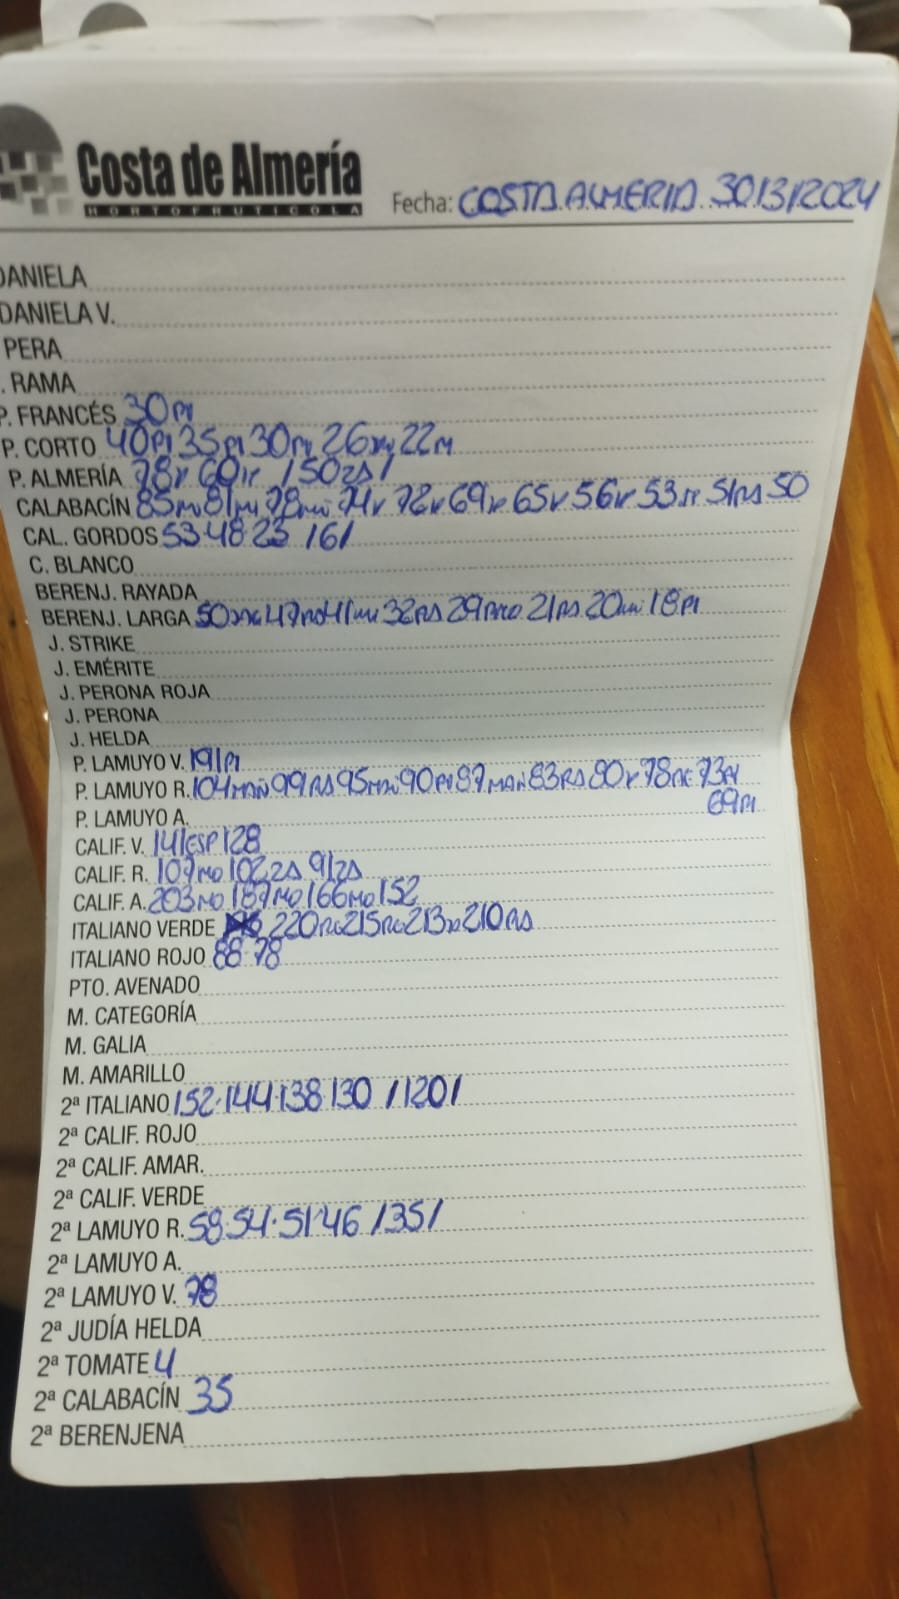 Costa de Almería
HORTOFRUTICOLA
Fecha: COSTA ALMERIA 30/3/2024
DANIELA
DANIELA V.
PERA
. RAMA
P. FRANCÉS 30PI
P. CORTO 40PI 35PI 30 26 22
P. ALMERÍA 78 60 /50 /
CALABACÍN 85 81 78 74 72 69 65 56 53 51 50
CAL. GORDOS 53 48 23 /6/
C. BLANCO
BERENJ. RAYADA
BERENJ. LARGA 50 47 41 32RS 29 21RS 20 18PI
J. STRIKE
J. EMÉRITE
J. PERONA ROJA
J. PERONA
J. HELDA
P. LAMUYO V. 191PI
P. LAMUYO R. 104MAÑ 99RS 95 90PI 87MAÑ 83RS 80 78 73PI
69PI
P. LAMUYO A.
CALIF. V. 141ESP 128
CALIF. R. 107MO 102 91
CALIF. A. 203MO 187MO 166MO 152
ITALIANO VERDE 220 215 213 210RS
ITALIANO ROJO 88 78
PTO. AVENADO
M. CATEGORÍA
M. GALIA
M. AMARILLO
2ª ITALIANO 152·144·138·130 /120/
2ª CALIF. ROJO
2ª CALIF. AMAR.
2ª CALIF. VERDE
2ª LAMUYO R. 58·54·51·46 /35/
2ª LAMUYO A.
2ª LAMUYO V. 78
2ª JUDÍA HELDA
2ª TOMATE 4
2ª CALABACÍN 35
2ª BERENJENA